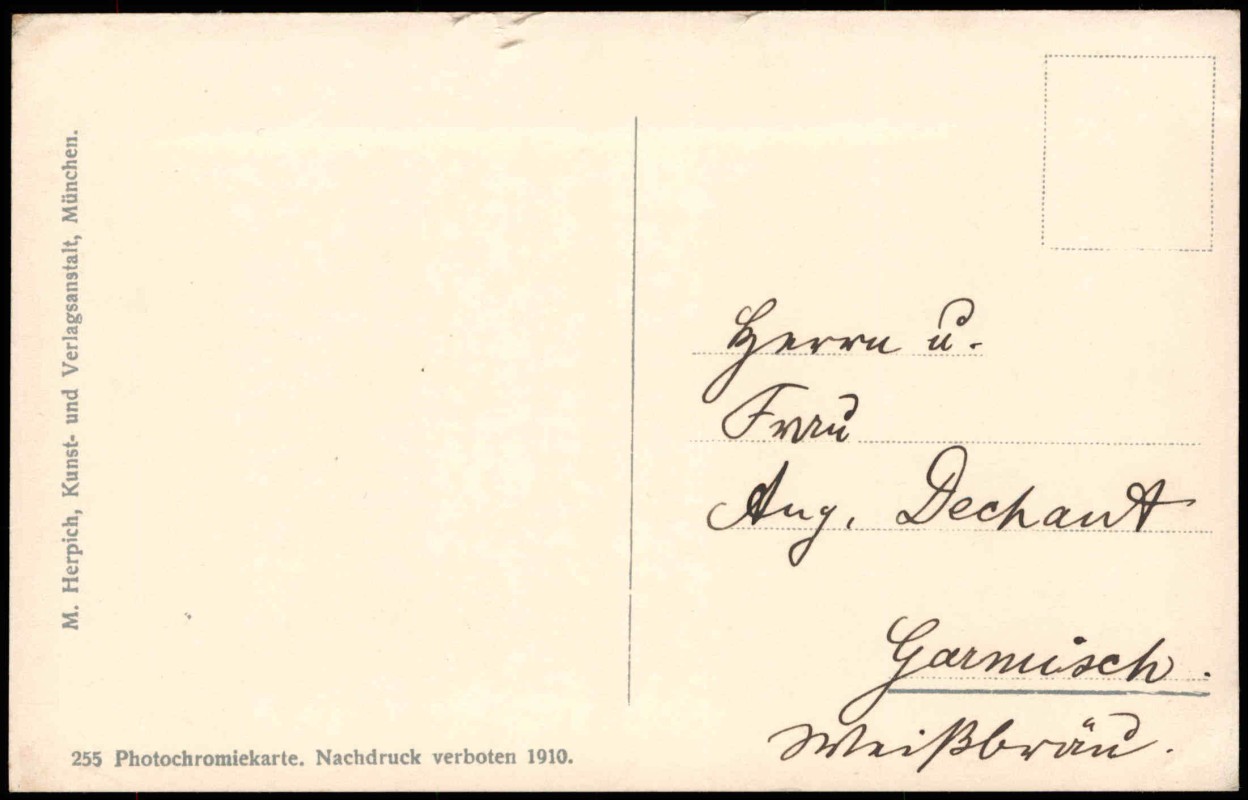 M. Herpich, Kunst- und Verlagsanstalt, München.
Herrn u.
Frau
Aug. Dechant
Garmisch.
Weißbräu.
255 Photochromiekarte. Nachdruck verboten 1910.